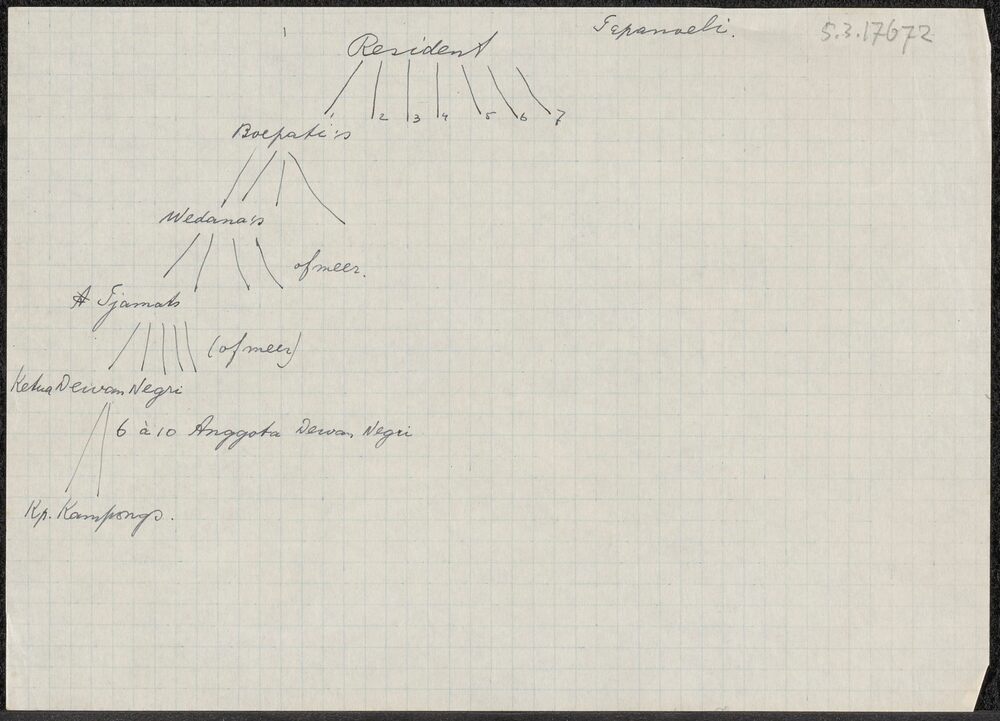 Tapanoeli.
5.3.17672
Resident
2 3 4 5 6 7
Boepati's
Wedana's
of meer.
A Tjamats
(of meer)
Ketua Dewan Negri
6 à 10 Anggota Dewan Negri
Kp. Kampongs.